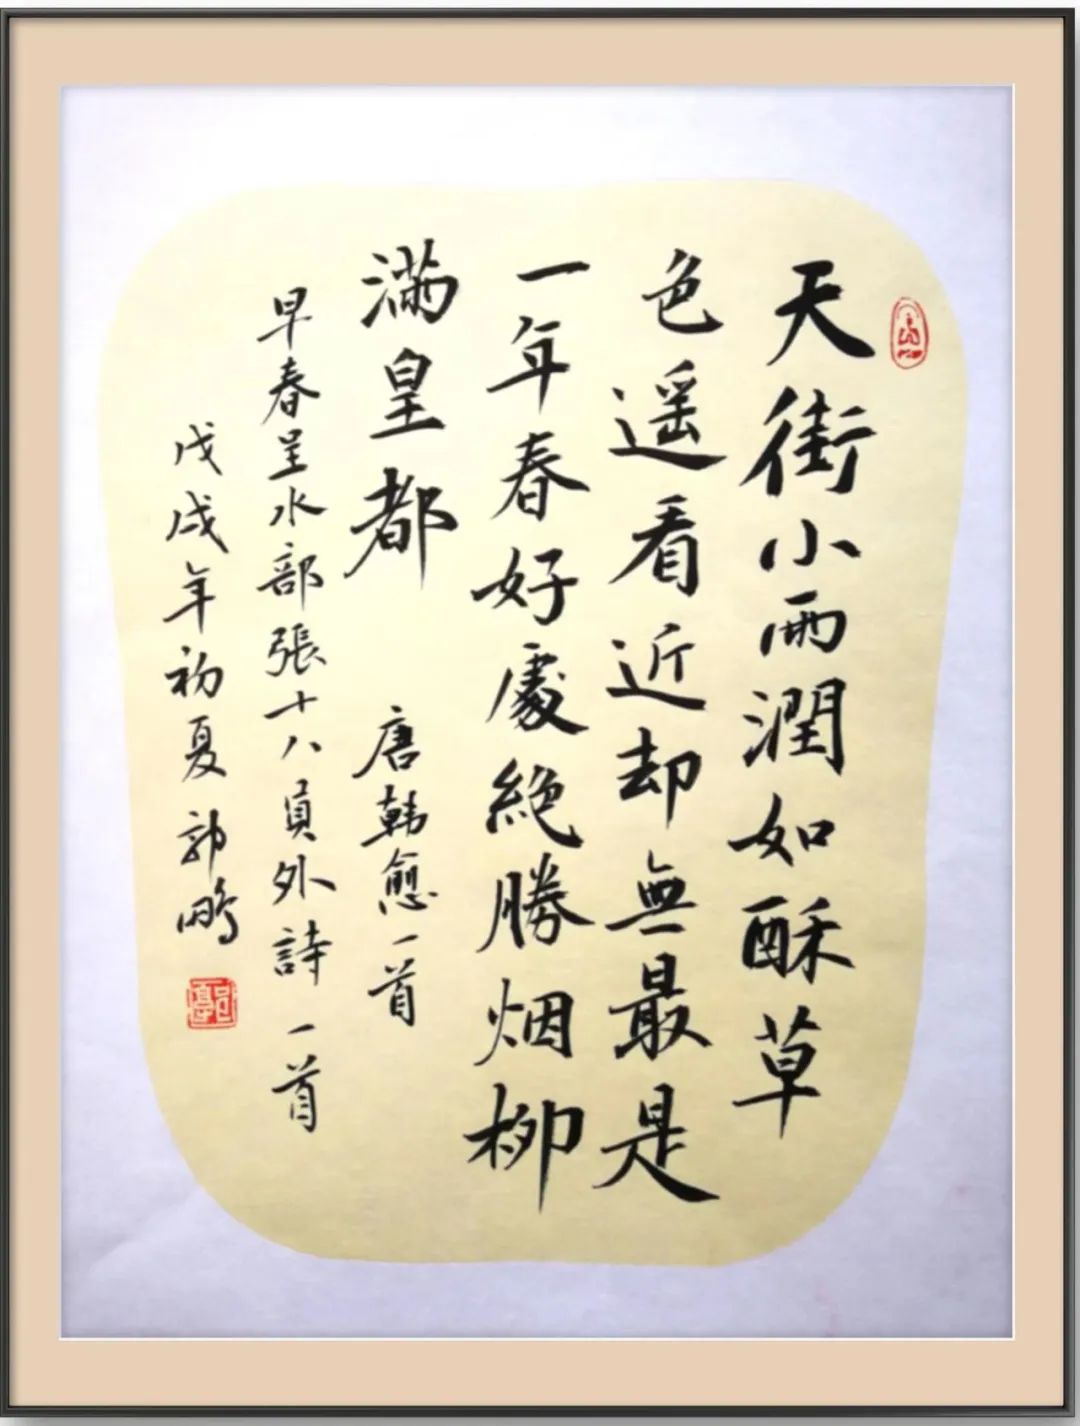 天街小雨潤如酥草
色遥看近却無最是
一年春好處絶勝烟柳
满皇都
唐韩愈一首
早春呈水部張十八員外詩一首
戊戌年初夏郭鹏